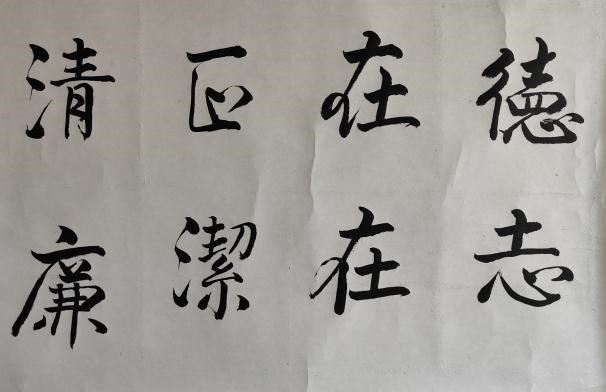 德在正清
志在潔廉